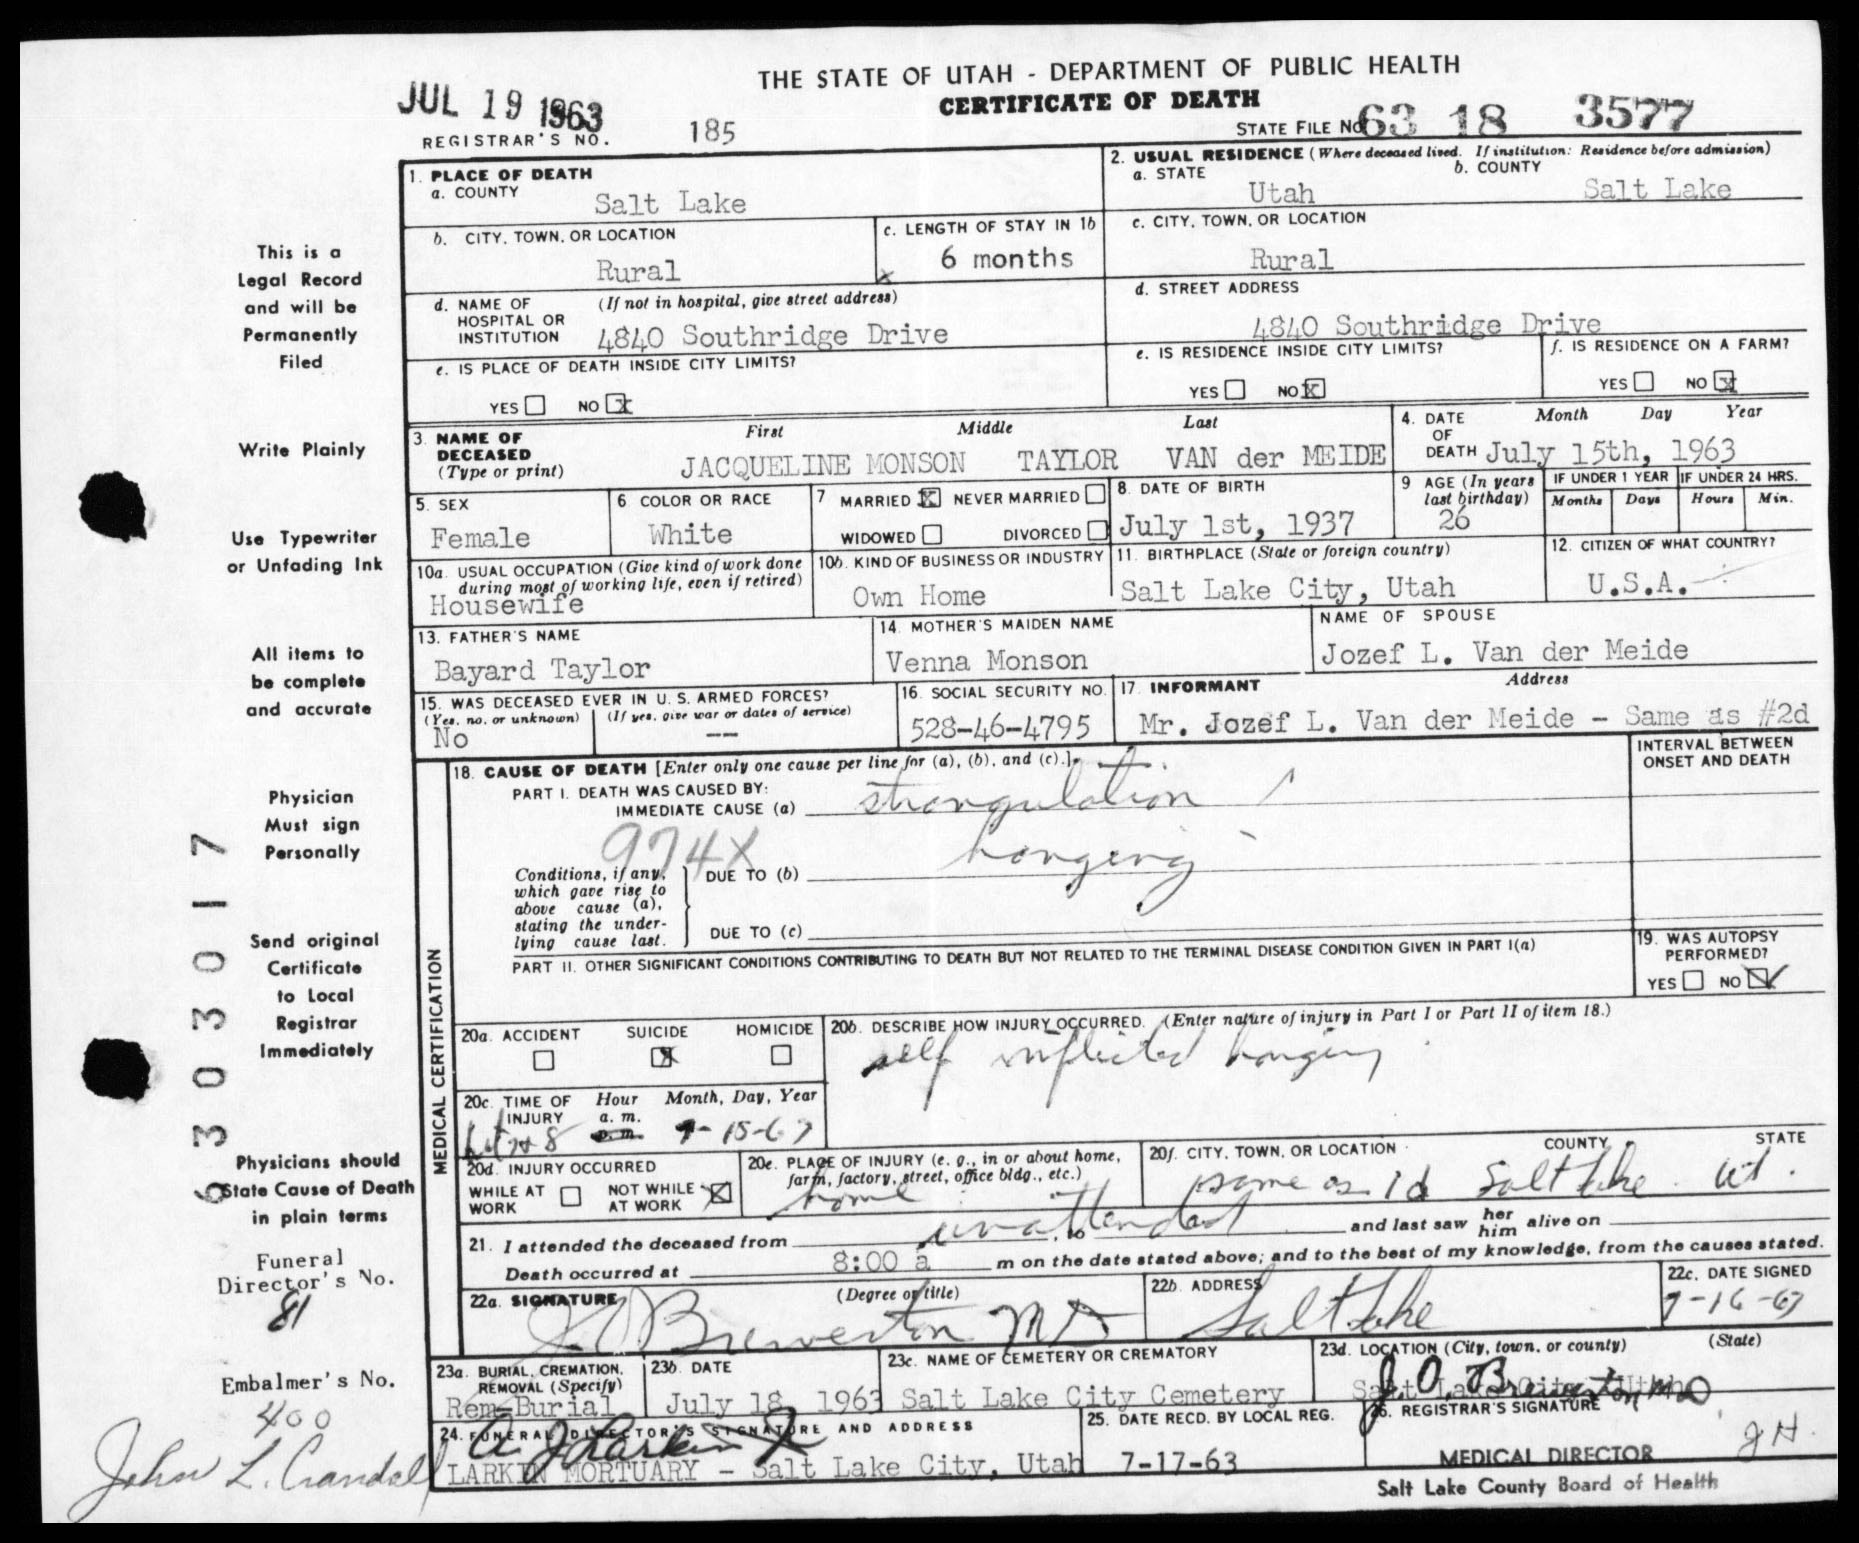 THE STATE OF UTAH - DEPARTMENT OF PUBLIC HEALTH
CERTIFICATE OF DEATH
JUL 19 1963
REGISTRAR'S NO. 185
STATE FILE NO. 63 18 3577
1. PLACE OF DEATH
a. COUNTY Salt Lake
2. USUAL RESIDENCE (Where deceased lived. If institution: Residence before admission)
a. STATE Utah b. COUNTY Salt Lake
b. CITY, TOWN, OR LOCATION Rural
c. LENGTH OF STAY IN 1b 6 months
c. CITY, TOWN, OR LOCATION Rural
d. NAME OF HOSPITAL OR INSTITUTION (If not in hospital, give street address) 4840 Southridge Drive
d. STREET ADDRESS 4840 Southridge Drive
e. IS PLACE OF DEATH INSIDE CITY LIMITS? YES NO X
e. IS RESIDENCE INSIDE CITY LIMITS? YES NO X
f. IS RESIDENCE ON A FARM? YES NO X
3. NAME OF DECEASED (Type or print) First Middle Last
JACQUELINE MONSON TAYLOR VAN der MEIDE
4. DATE OF DEATH Month Day Year
July 15th, 1963
5. SEX Female
6 COLOR OR RACE White
7 MARRIED X NEVER MARRIED WIDOWED DIVORCED
8. DATE OF BIRTH July 1st, 1937
9 AGE (In years last birthday) 26
IF UNDER 1 YEAR Months Days
IF UNDER 24 HRS. Hours Min.
10a. USUAL OCCUPATION (Give kind of work done during most of working life, even if retired) Housewife
10b. KIND OF BUSINESS OR INDUSTRY Own Home
11. BIRTHPLACE (State or foreign country) Salt Lake City, Utah
12. CITIZEN OF WHAT COUNTRY? U.S.A.
13. FATHER'S NAME Bayard Taylor
14. MOTHER'S MAIDEN NAME Venna Monson
NAME OF SPOUSE Jozef L. Van der Meide
15. WAS DECEASED EVER IN U. S. ARMED FORCES? (Yes, no, or unknown) (If yes, give war or dates of service)
No --
16. SOCIAL SECURITY NO. 528-46-4795
17. INFORMANT Address
Mr. Jozef L. Van der Meide - Same as #2d
18. CAUSE OF DEATH [Enter only one cause per line for (a), (b), and (c).]
INTERVAL BETWEEN ONSET AND DEATH
PART I. DEATH WAS CAUSED BY:
IMMEDIATE CAUSE (a) strangulation
974X
Conditions, if any, which gave rise to above cause (a), stating the underlying cause last.
DUE TO (b) hanging
DUE TO (c)
PART II. OTHER SIGNIFICANT CONDITIONS CONTRIBUTING TO DEATH BUT NOT RELATED TO THE TERMINAL DISEASE CONDITION GIVEN IN PART I(a)
19. WAS AUTOPSY PERFORMED? YES NO
20a. ACCIDENT SUICIDE X HOMICIDE
20b. DESCRIBE HOW INJURY OCCURRED. (Enter nature of injury in Part I or Part II of item 18.)
self inflicted hanging
20c. TIME OF INJURY Hour a. m. p. m. Month, Day, Year
7-15-63
20d. INJURY OCCURRED WHILE AT WORK NOT WHILE AT WORK X
20e. PLACE OF INJURY (e. g., in or about home, farm, factory, street, office bldg., etc.)
home
20f. CITY, TOWN, OR LOCATION COUNTY STATE
same as 1d Salt Lake Ut.
21. I attended the deceased from unattended to and last saw her him alive on
Death occurred at 8:00 a m on the date stated above; and to the best of my knowledge, from the causes stated.
22a. SIGNATURE (Degree or title)
Brewerton MD
22b. ADDRESS Salt Lake
22c. DATE SIGNED 7-16-63
23a. BURIAL, CREMATION, REMOVAL (Specify) Rem-Burial
23b. DATE July 18, 1963
23c. NAME OF CEMETERY OR CREMATORY Salt Lake City Cemetery
23d. LOCATION (City, town, or county) (State)
Salt Lake City, Utah
24. FUNERAL DIRECTOR'S SIGNATURE AND ADDRESS
LARKIN MORTUARY - Salt Lake City, Utah
25. DATE RECD. BY LOCAL REG. 7-17-63
26. REGISTRAR'S SIGNATURE
J. O. Brewerton MD
JH.
MEDICAL DIRECTOR
Salt Lake County Board of Health
MEDICAL CERTIFICATION
This is a
Legal Record
and will be
Permanently
Filed
Write Plainly
Use Typewriter
or Unfading Ink
All items to
be complete
and accurate
Physician
Must sign
Personally
Send original
Certificate
to Local
Registrar
Immediately
Physicians should
State Cause of Death
in plain terms
Funeral
Director's No.
81
Embalmer's No.
400
John L. Crandall
6303017